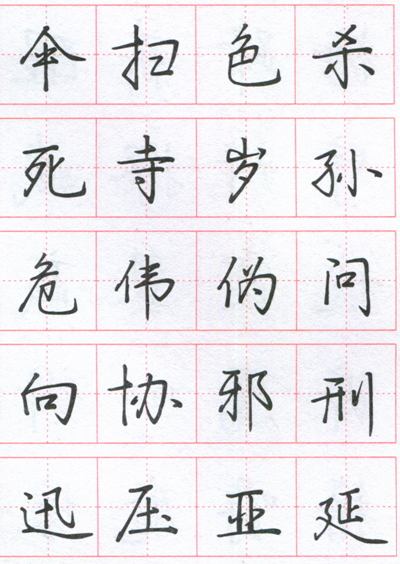 伞扫色杀
死寺岁孙
危伟伪问
向协邪刑
迅压亚延